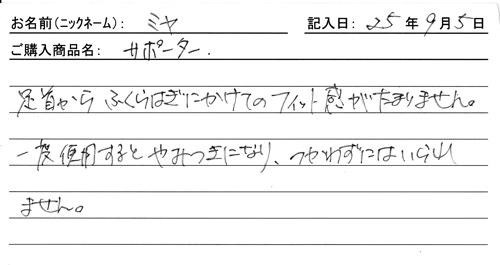 お名前(ニックネーム): ミヤ 記入日: 25年9月5日
ご購入商品名: サポーター.
足首から ふくらはぎにかけてのフィット感がたまりません。
一度使用するとやみつきになり、つかわずにはいられ
ません。